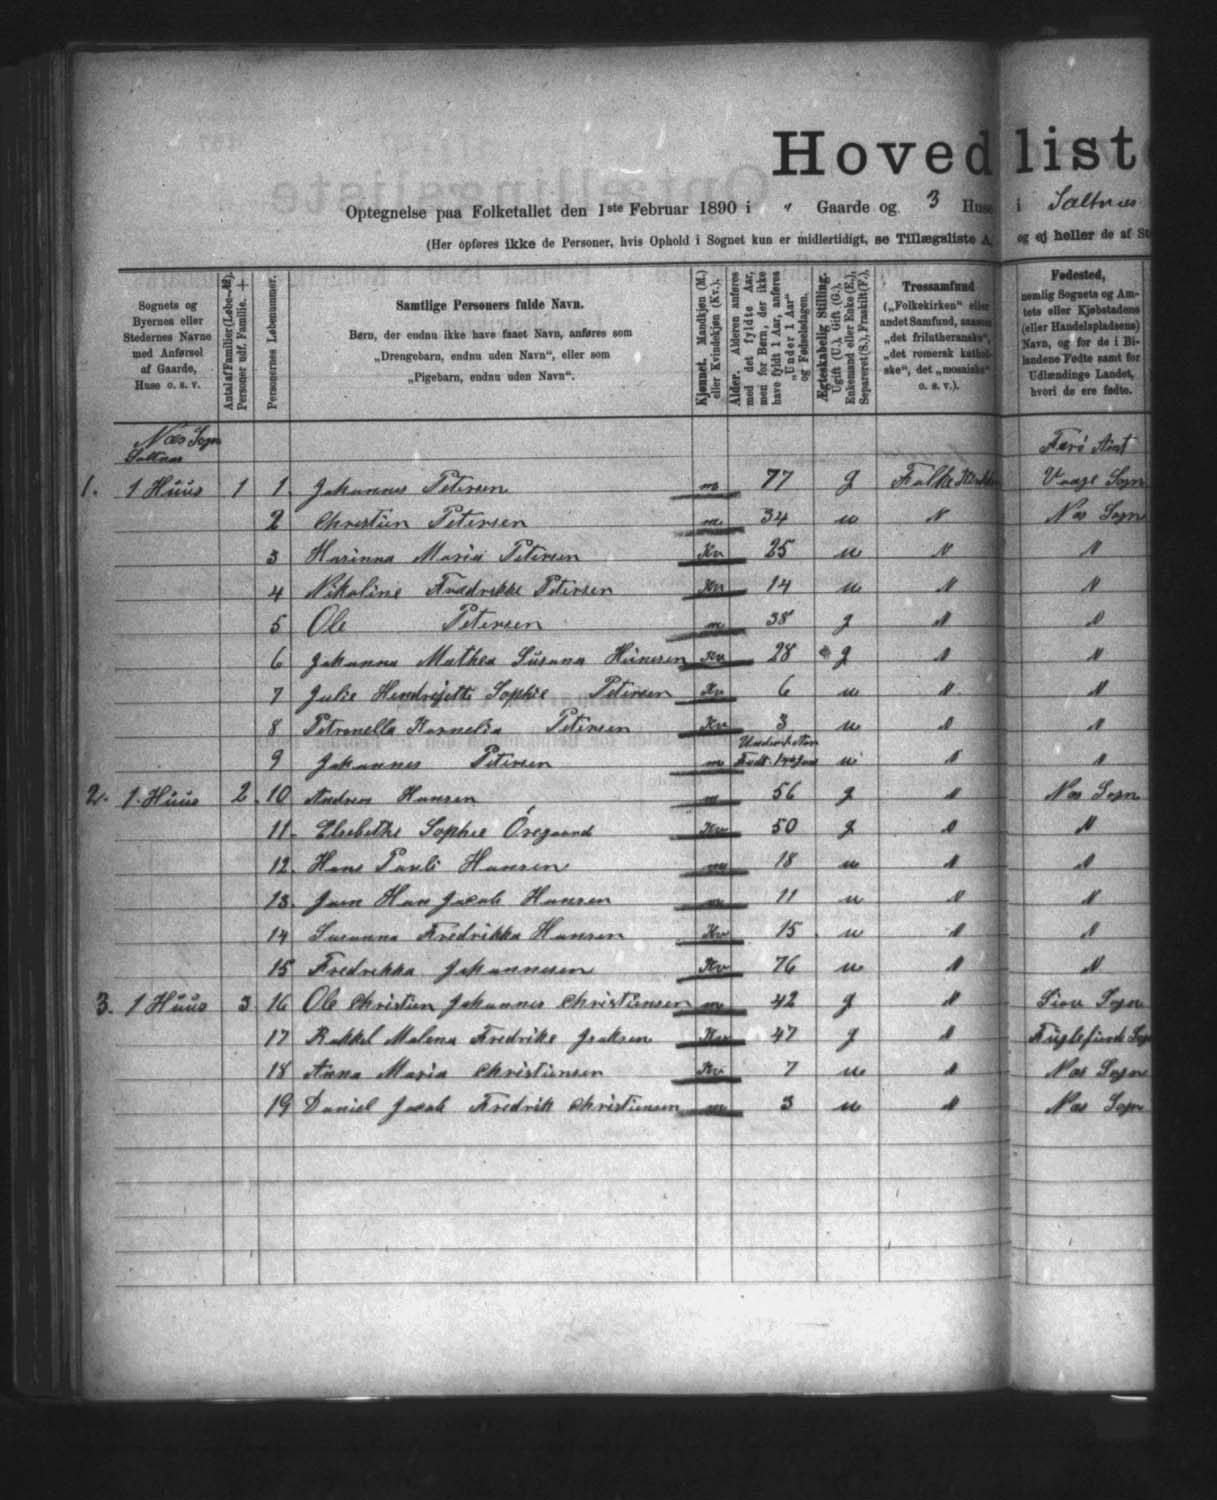 Hovedliste
Optegnelse paa Folketallet den 1ste Februar 1890 i " Gaarde og 3 Huse i Saltnæs
(Her opføres ikke de Personer, hvis Ophold i Sognet kun er midlertidigt, se Tillægsliste A, og ej heller de af
Sognets og Byernes eller Stedernes Navne med Anførsel af Gaarde, Huse o. s. v.
Antal af Familier (Løbe-№). Personer udf. Familie. +
Personernes Løbenummer.
Samtlige Personers fulde Navn.
Børn, der endnu ikke have faaet Navn, anføres som
„Drengebarn, endnu uden Navn“, eller som
„Pigebarn, endnu uden Navn“.
Kjønnet. Mandkjøn (M.) eller Kvindekjøn (Kv.).
Alder. Alderen anføres med det fyldte Aar, men for Børn, der ikke have fyldt 1 Aar, anføres „Under 1 Aar“ og Fødselsdagen.
Ægteskabelig Stilling. Ugift (U.), Gift (G.), Enkemand eller Enke (E.), Separeret (S.), Fraskilt (F.).
Trossamfund („Folkekirken“ eller andet Samfund, saasom „det frilutheranske“, „det romersk katholske“, det „mosaiske“ o. s. v.).
Fødested, nemlig Sognets og Amtets eller Kjøbstadens (eller Handelspladsens) Navn, og for de i Bilandene Fødte samt for Udlændinge Landet, hvori de ere fødte.
Næs Sogn
Saltnæs
Færø Amt
1. 1 Huus 1 1 Johannes Petersen m 77 g Folke Kirken Vaage Sogn
2 Christian Petersen m 34 u " Næs Sogn
3 Harinna Maria Petersen Kv 25 u " "
4 Nikoline Fredrikke Petersen Kv 14 u " "
5 Ole Petersen m 38 g " "
6 Johanna Mathea Susana Hansen Kv 28 g " "
7 Julie Hendrijette Sophie Petersen Kv 6 u " "
8 Petronella Kornelia Petersen Kv 3 u " "
9 Johannes Petersen m Under 1 u " "
2. 1 Huus 2 10 Andreas Hansen m 56 g " Næs Sogn
11 Elsebethe Sophie Øregaard Kv 50 g " "
12 Hans Pauli Hansen m 18 u " "
13 Joen Han Jacob Hansen m 11 u " "
14 Susanna Fredrikka Hansen Kv 15 u " "
15 Fredrekka Johannesen Kv 76 u " "
3. 1 Huus 3 16 Ole Christian Johannes Christiansen m 42 g " Siov Sogn
17 Rakkel Malena Fredrike Joaksen Kv 47 g " Fuglefjords Sogn
18 Anna Maria Christiansen Kv 7 u " Næs Sogn
19 Daniel Jacob Fredrik Christiansen m 3 u " Næs Sogn